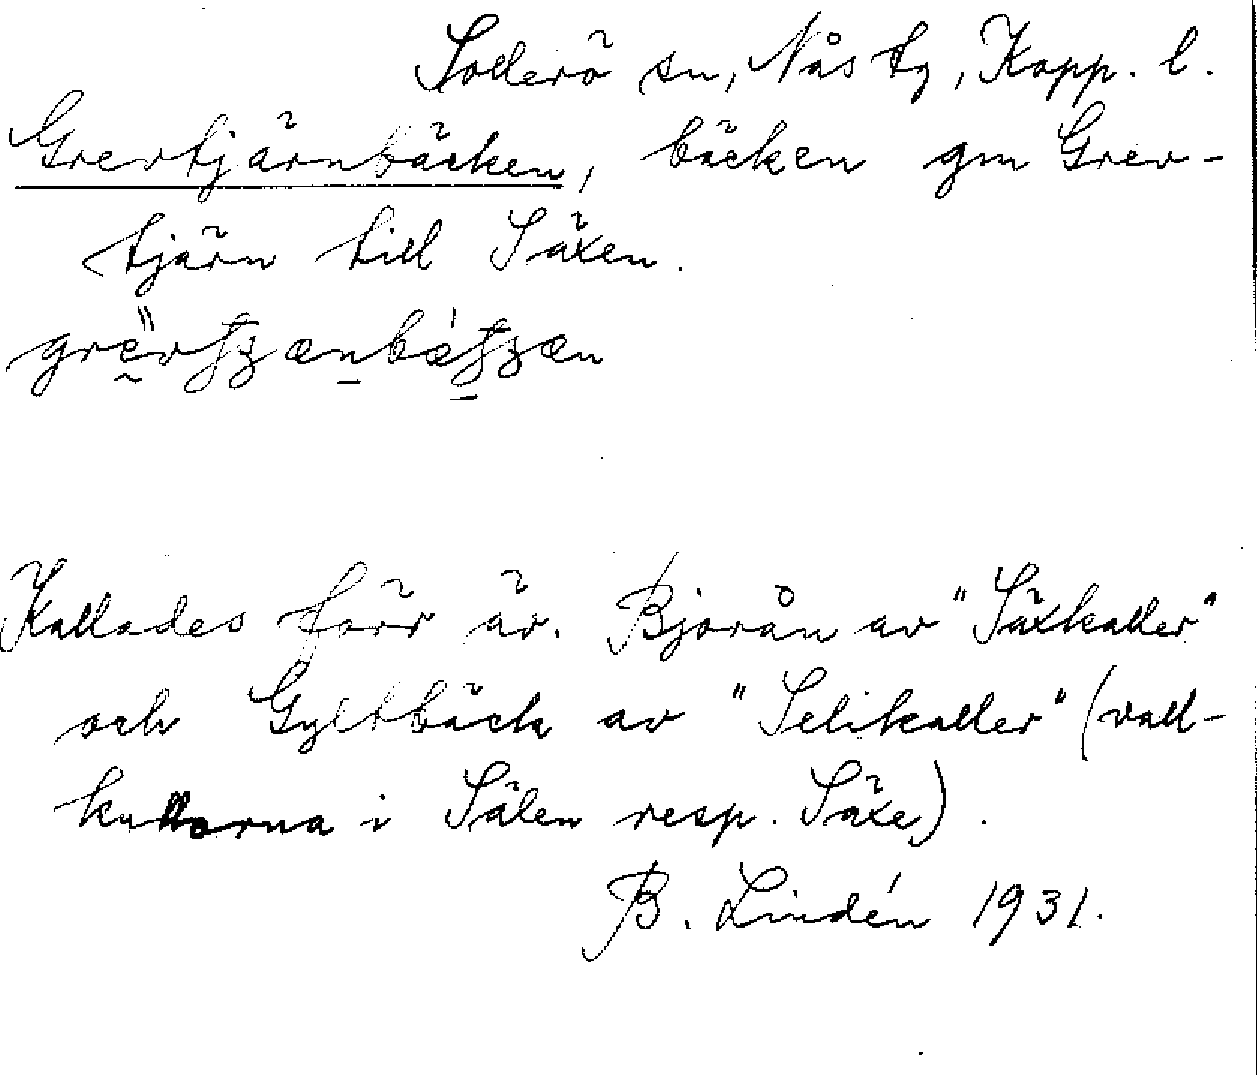 Sollerö sn, Nås tg, Kopp. l.
Grevtjärnbäcken, bäcken gm Grev-
tjärn till Säxen.
Kallades förr äv. Bjorån av "Säxkaller"
och Gyltbäck av "Selikaller" (vall-
kullorna i Sälen resp. Säxe).
B. Lindén 1931.